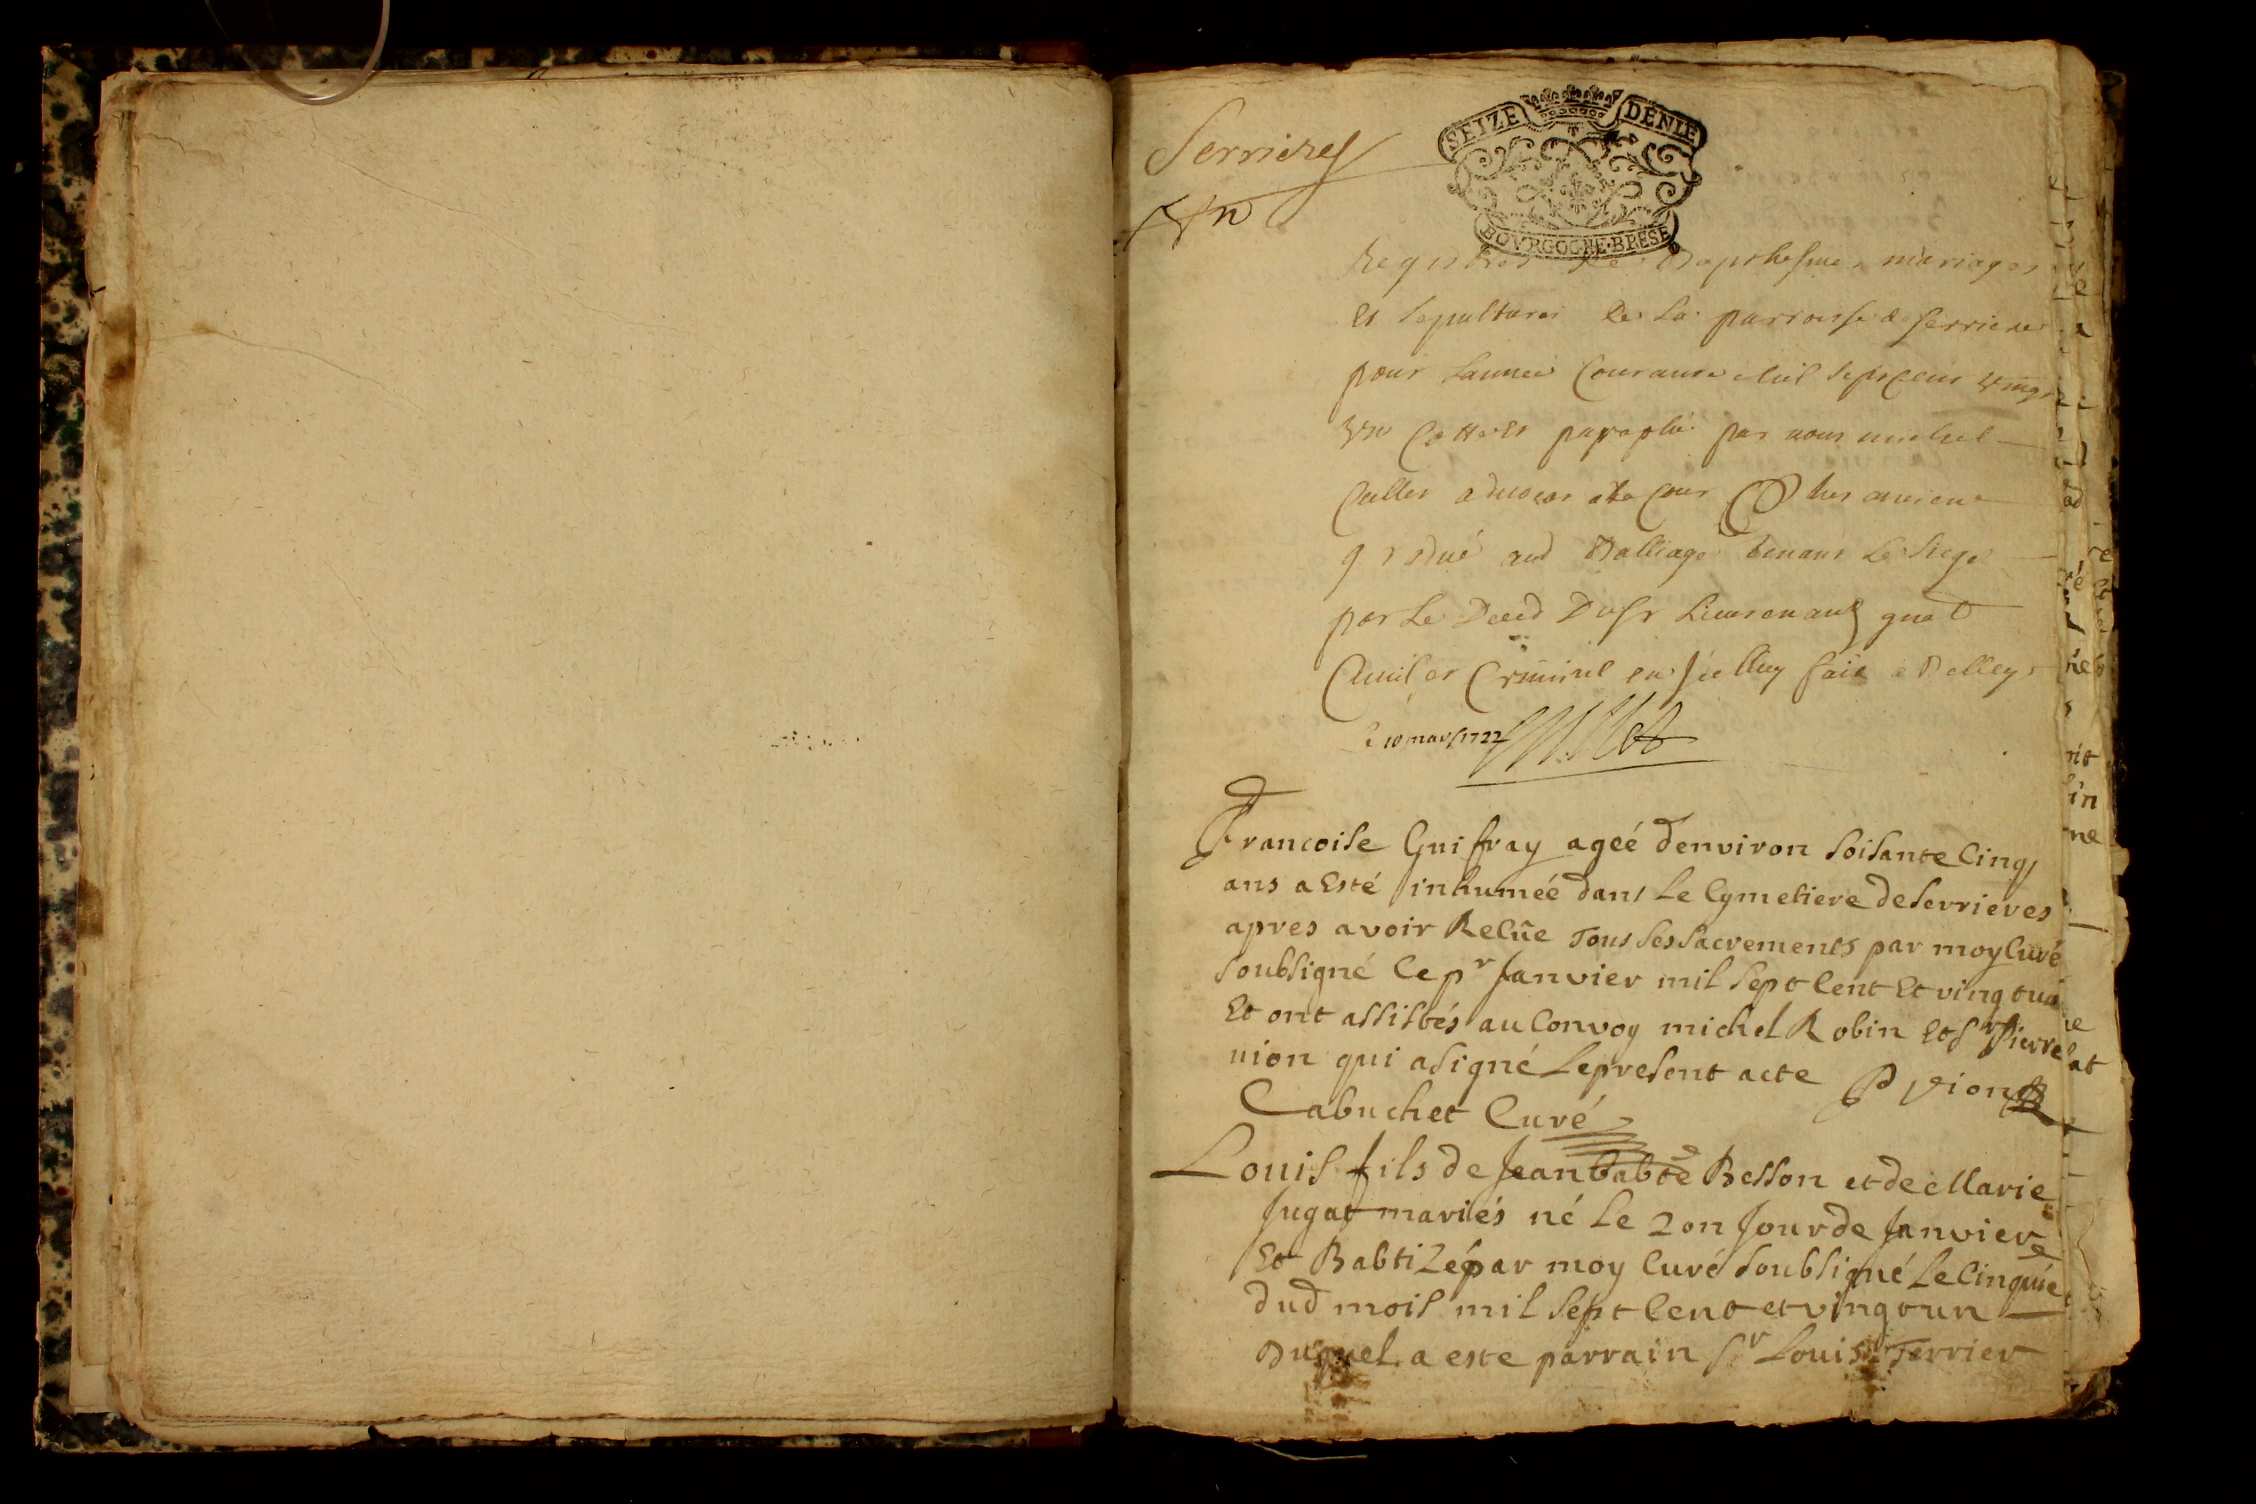 Serrieres
SEIZE DENIE
BOVRGOGNE·BRESE
Registres de Bapthesmes mariages
Et sepultures de la parroisse de serrieres
pour lannee Courante mil sept Cent vingt
vn Cotté Et paraphé par nous michel
advocat a la Cour plus ancien
gradué aud Balliage tenant le siege
par le deced du sr Lieutenant gnal
Civil et Criminel en Icelluy fait a Belley
le 10 mars 1722
Francoise Guifray ageé denviron soisante Cinq
ans a Esté inhumeé dans le Cymetiere de serrieres
apres avoir Recûe tous ses sacrements par moy Curé
soubsigné le pr Janvier mil sept Cent Et vingt un
Et ont assistés au Convoy michel Robin Et sr Pierre
uion qui a signé le present acte P vion
Cabuchet Curé
Louis fils de Jean babte Besson et de Marie
Jugat mariés né le 2on Jour de Janvier
Et Babtizé par moy Curé soubsigné le Cinquie
dud mois mil sept Cent et vingt un
Duquel a este parrain sr Louis Terrier